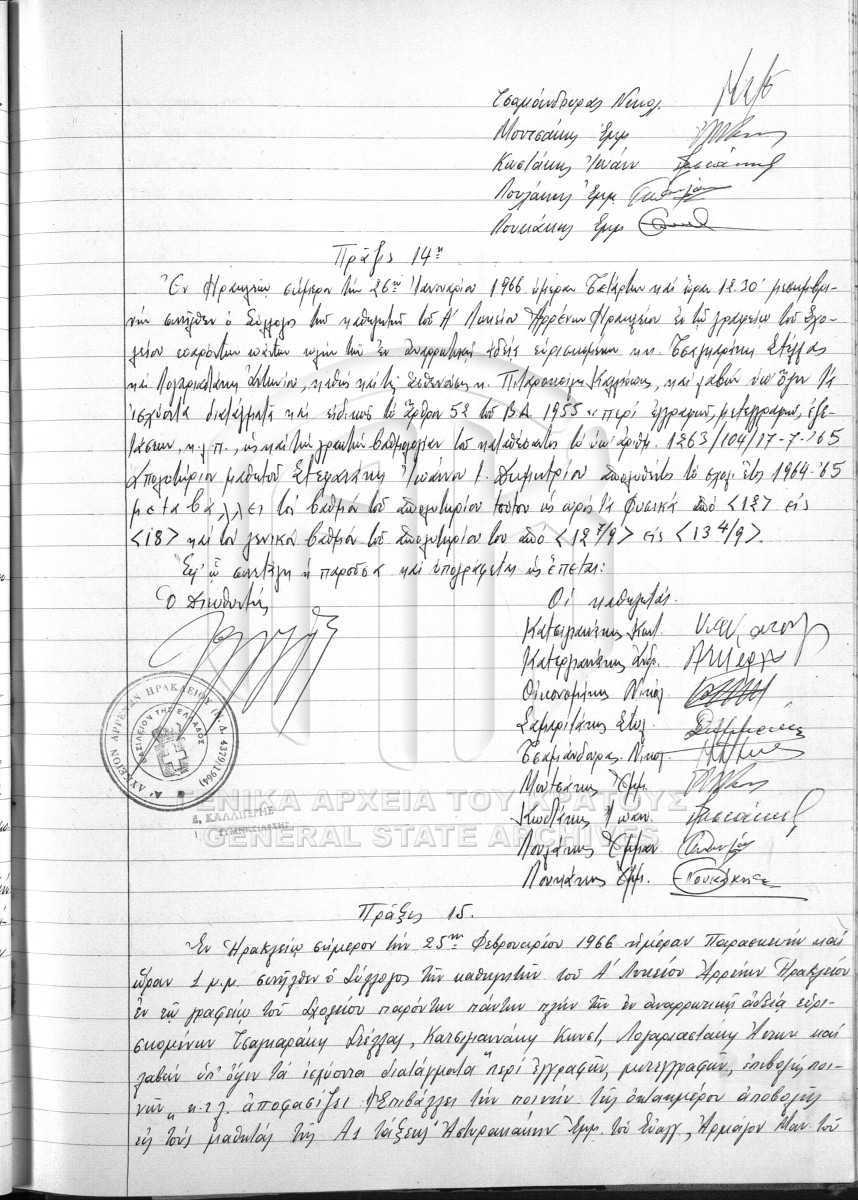 Τσαμάνδουρας Νικολ.
Μουτσάκης Ἐμμ.
Κωστάκης Ἰωάν.
Λουλάκης Ἐμμ.
Λουκάκης Ἐμμ.
Πρᾶξις 14η
Ἐν Ἡρακλείῳ σήμερον τήν 26ην Ἰανουαρίου 1966 ἡμέραν Τετάρτην καί ὥραν 12.30' μεσημβρι-
νήν συνῆλθεν ὁ Σύλλογος τῶν καθηγητῶν τοῦ Α' Λυκείου Ἀρρένων Ἡρακλείου ἐν τῷ γραφείῳ τοῦ Σχο-
λείου παρόντων πάντων πλήν τῶν ἐν ἀναρρωτικῇ ἀδείᾳ εὑρισκομένων κ.κ. Τσαγκαράκη Στέλλας
καί Λογαριαστάκη Ἀντωνίου, καθώς καί τῆς Καλλιόπης, καί λαβών ὑπ' ὄψιν τά
ἰσχύοντα διατάγματα καί εἰδικῶς τό ἄρθρον 52 τοῦ Β.Δ. 1955 "περί ἐγγραφῶν, μετεγγραφῶν, ἐξε-
τάσεων, κ.λ.π., ὡς καί τήν γραπτήν βαθμολογίαν τοῦ καταθέσαντος τό ὑπ' ἀριθμ. 1263/104/17-7-'65
Ἀπολυτήριον μαθητοῦ Στεφανάκη Ἰωάννου τ. Δημητρίου ἀπολυθέντος τό σχολ. ἔτος 1964-'65
μεταβάλλει τόν βαθμόν τοῦ ἀπολυτηρίου τούτου ὡς πρός τά Φυσικά ἀπό <12> εἰς
<18> καί τόν γενικόν βαθμόν τοῦ ἀπολυτηρίου του ἀπό <12 7/9> εἰς <13 4/9>.
Ἐφ' ᾧ συνετάγη ἡ παροῦσα καί ὑπογράφεται ὡς ἕπεται:
Ὁ Διευθυντής
Οἱ καθηγηταί.
Κατσιμανάκης Κωνστ.
Κατεργιαννάκης Ἀνδρ.
Οἰκονομάκης Νικολ.
Σαμαριτάκης Στυλ.
Τσαμάνδουρας Νικολ.
Μουτσάκης Ἐμμ.
Κωστάκης Ἰωαν.
Λουλάκης Ἐμμαν.
Λουκάκης Ἐμμ.
Α' ΛΥΚΕΙΟΝ ΑΡΡΕΝΩΝ ΗΡΑΚΛΕΙΟΥ (Ν.Δ. 4379/1964)
ΒΑΣΙΛΕΙΟΝ ΤΗΣ ΕΛΛΑΔΟΣ
ΚΑΛΛΙΓΕΡΗΣ
ΓΥΜΝΑΣΙΑΡΧΗΣ
ΓΕΝΙΚΑ ΑΡΧΕΙΑ ΤΟΥ ΚΡΑΤΟΥΣ
GENERAL STATE ARCHIVES
Πρᾶξις 15.
Ἐν Ἡρακλείῳ σήμερον τήν 25ην Φεβρουαρίου 1966 ἡμέραν Παρασκευήν καί
ὥραν 1 μ.μ. συνῆλθεν ὁ Σύλλογος τῶν καθηγητῶν τοῦ Α' Λυκείου Ἀρρένων Ἡρακλείου
ἐν τῷ γραφείῳ τοῦ Σχολείου παρόντων πάντων πλήν τῶν ἐν ἀναρρωτικῇ ἀδείᾳ εὑρι-
σκομένων Τσαγκαράκη Στέλλας, Κατσιμανάκη Κωνστ, Λογαριαστάκη Ἀντων καί
λαβών ὑπ' ὄψιν τά ἰσχύοντα διατάγματα "περί ἐγγραφῶν, μετεγγραφῶν, ἐπιβολῆς ποι-
νῶν" κ.τ.λ. ἀποφασίζει Ἐπιβάλλει τήν ποινήν τῆς ὀκταημέρου ἀποβολῆς
εἰς τούς μαθητάς τῆς Α1 τάξεως Ἀστυρακάκην Ἐμμ. τοῦ Εὐαγγ., Ἁρμάγον Μαν. τοῦ